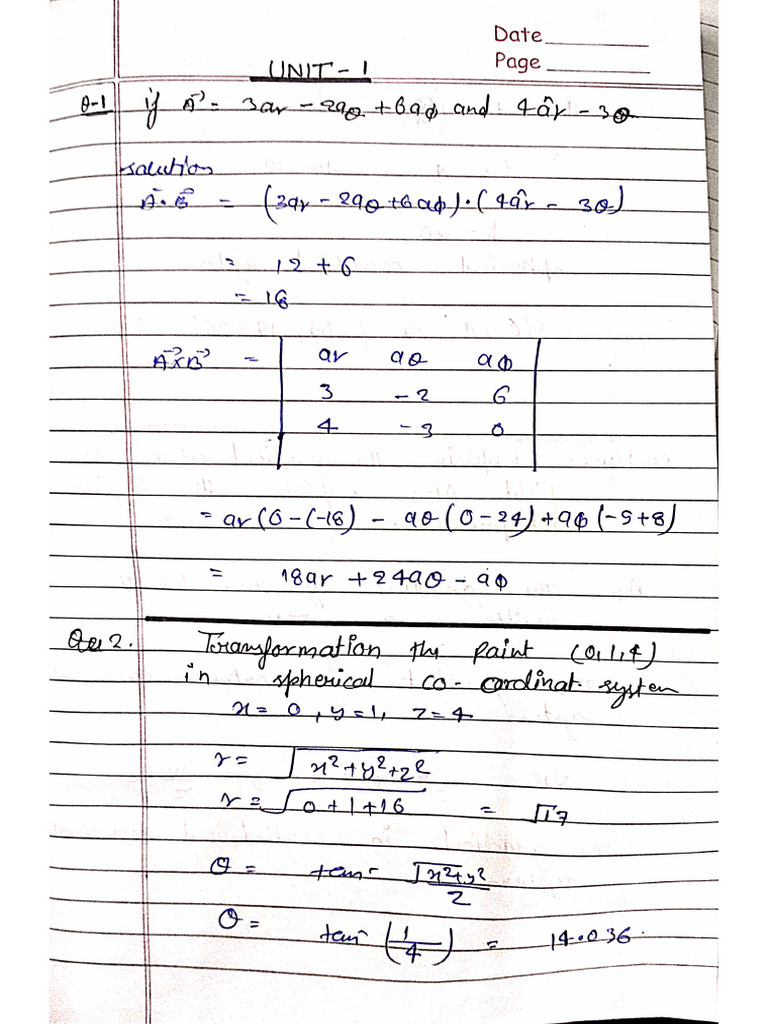 Date
Page
UNIT - 1
Q-1 if A→ = 3ar - 2aθ + 6aϕ and 4âr - 3θ
solution
A⃗·B⃗ = (3ar - 2aθ + 6aϕ)·(4âr - 3θ)
= 12 + 6
= 18
A⃗×B⃗ = | ar aθ aϕ |
3 -2 6
4 -3 0
= ar(0-(-18) - aθ(0-24) + aϕ(-9+8)
= 18ar + 24aθ - aϕ
Que 2. Transformation the paint (0,1,4)
in spherical co-cordinat system
x = 0, y = 1, z = 4
r = √x²+y²+z²
r = √0+1+16 = √17
θ = tan- √x²+y²/z
θ = tan- (1/4) = 14.036